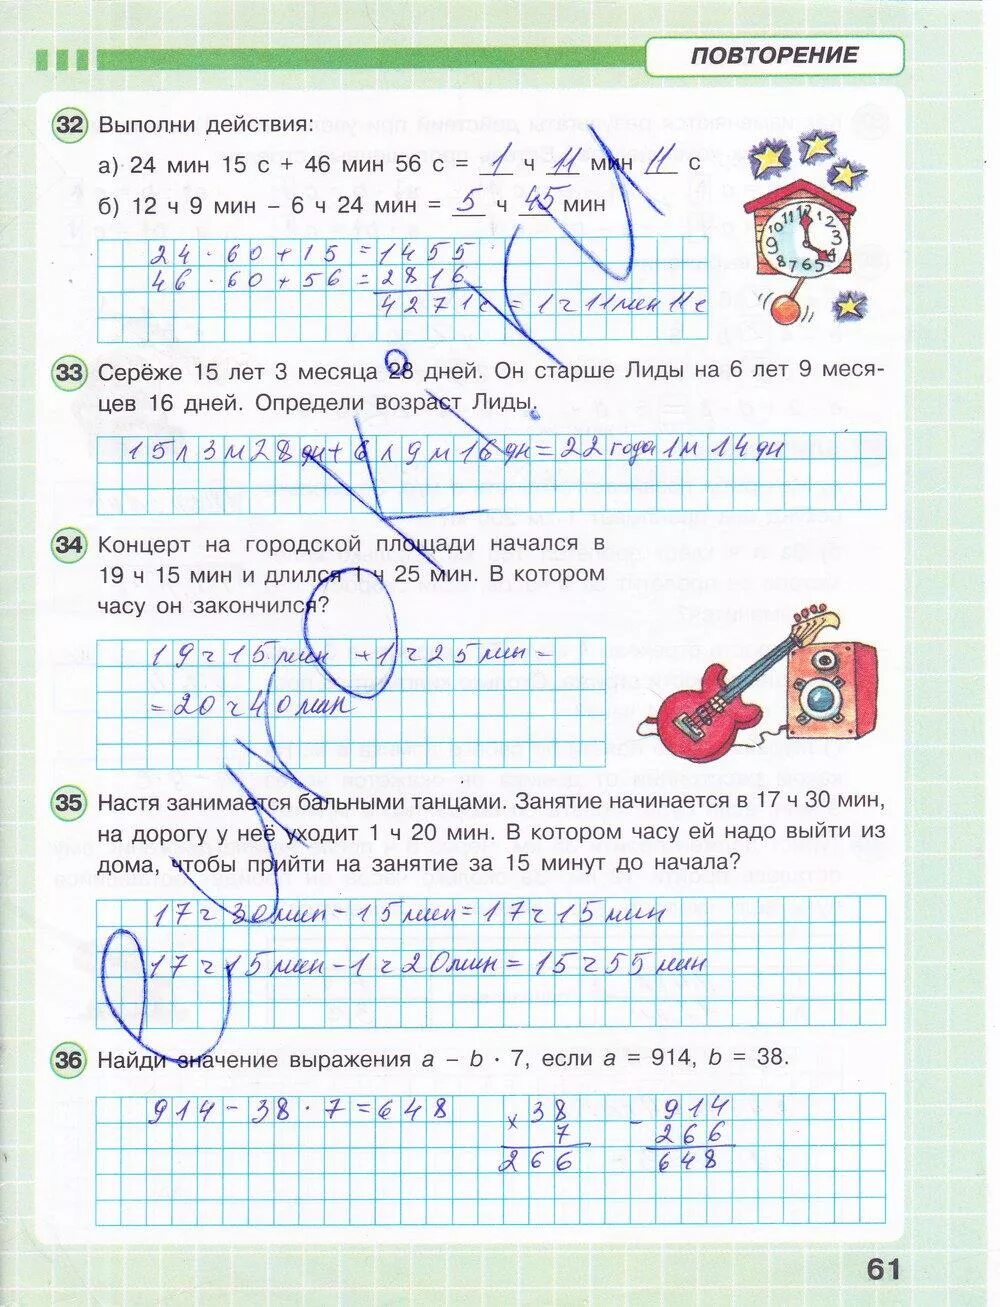 ПОВТОРЕНИЕ
32 Выполни действия:
а) 24 мин 15 с + 46 мин 56 с = 1 ч 11 мин 11 с
б) 12 ч 9 мин – 6 ч 24 мин = 5 ч 45 мин
24 · 60 + 15 = 1455
46 · 60 + 56 = 2816
4271с = 1ч 11мин 11с
33 Серёже 15 лет 3 месяца 28 дней. Он старше Лиды на 6 лет 9 меся-
цев 16 дней. Определи возраст Лиды.
15л 3м 28дн + 6л 9м 16дн = 22года 1м 14дн
34 Концерт на городской площади начался в
19 ч 15 мин и длился 1 ч 25 мин. В котором
часу он закончился?
19ч 15мин + 1ч 25мин =
= 20ч 40мин
35 Настя занимается бальными танцами. Занятие начинается в 17 ч 30 мин,
на дорогу у неё уходит 1 ч 20 мин. В котором часу ей надо выйти из
дома, чтобы прийти на занятие за 15 минут до начала?
17ч 30мин – 15мин = 17ч 15мин
17ч 15мин – 1ч 20мин = 15ч 55мин
36 Найди значение выражения a – b · 7, если a = 914, b = 38.
914 – 38 · 7 = 648
× 38
7
266
– 914
266
648
61